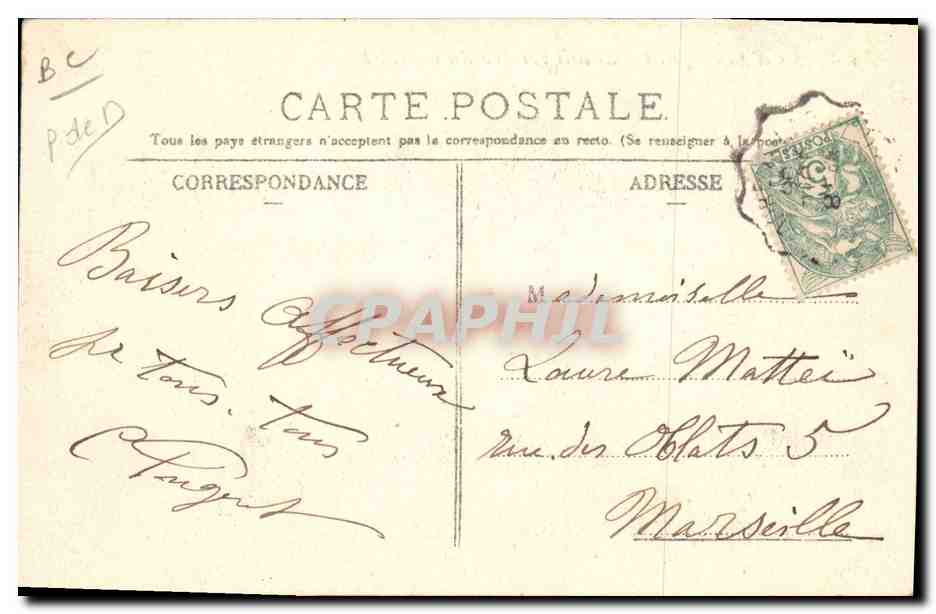 BC
P de D
CARTE POSTALE
Tous les pays étrangers n'acceptent pas la correspondance au recto. (Se renseigner à la poste)
CORRESPONDANCE
ADRESSE
POSTES
5
Baisers affectueux
pr tous. tous
Mademoiselle
Laure Matteï
rue des Oblats 5
Marseille
CPAPHIL